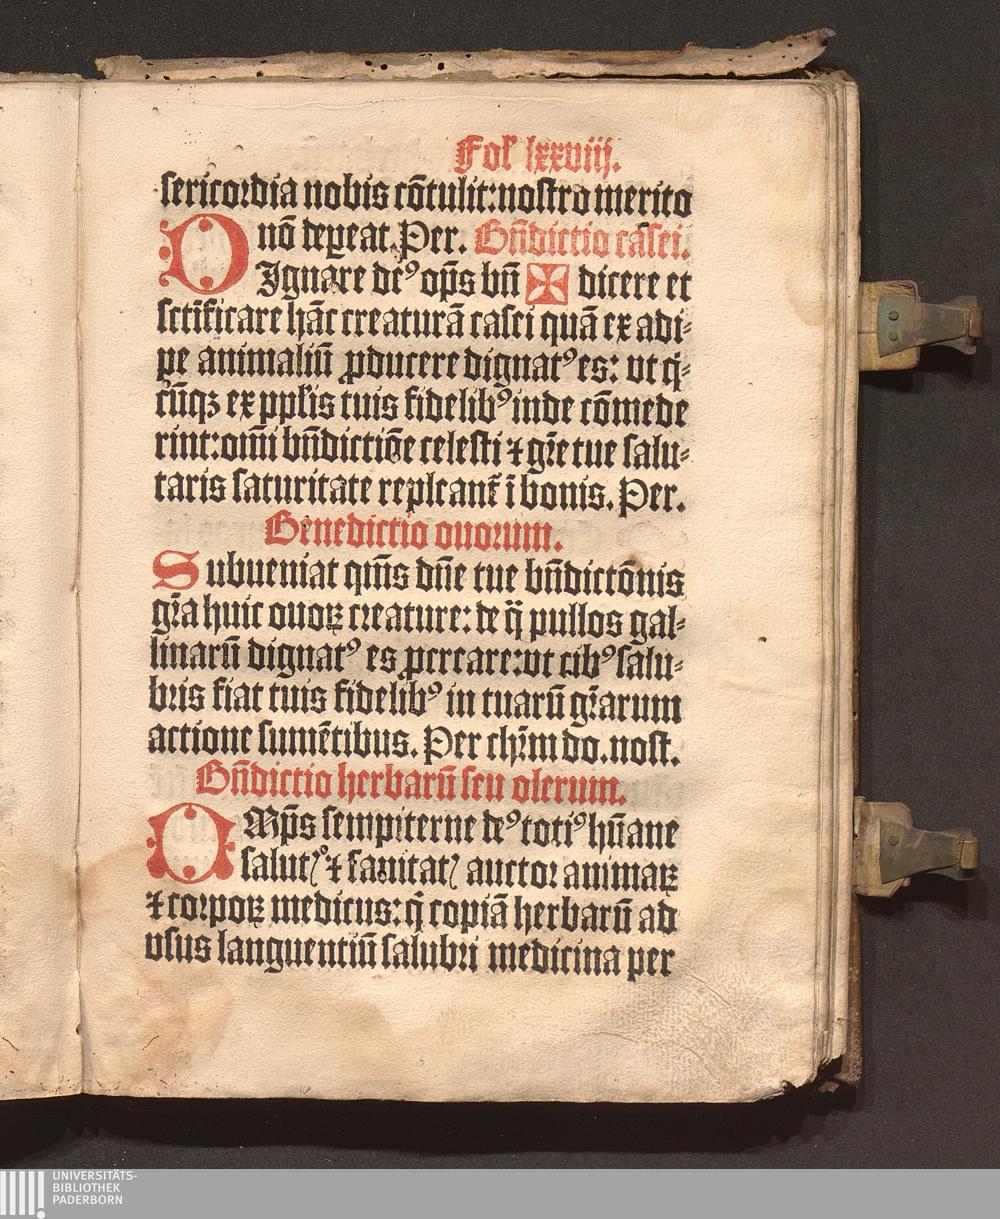 Fol̛ lxxviij.
sericordia nobis cōtulit: nostro merito
nō depereat. Per. Bn̄dictio casei.
DIgnare de⁹ op̄s bn̄ ✠ dicere et
sct̄ificare hāc creaturā casei quā ex adi⸗
pe animaliū ꝓducere dignat⁹ es: vt q̄⸗
cūqꝫ ex ppl̄is tuis fidelib⁹ inde cōmede
rint: om̄i bn̄dictiōe celesti ⁊ gr̄e tue salu⸗
taris saturitate repleant᷑ ī bonis. Per.
Benedictio ouorum.
Subueniat qm̄s dn̄e tue bn̄dictōnis
gr̄a huic ouoꝝ creature: de q̄ pullos gal⸗
linarū dignat⁹ es ꝓcreare: vt cib⁹ salu⸗
bris fiat tuis fidelib⁹ in tuarū gr̄arum
actione sumētibus. Per chr̄m do. nost.
Bn̄dictio herbarū seu olerum.
OMp̄s sempiterne de⁹ toti⁹ hūane
salutꝭ ⁊ sanitatꝭ auctor animaꝝ
⁊ corpoꝝ medicus: q̄ copiā herbarū ad
vsus languentiū salubri medicina per
UNIVERSITÄTS-
BIBLIOTHEK
PADERBORN